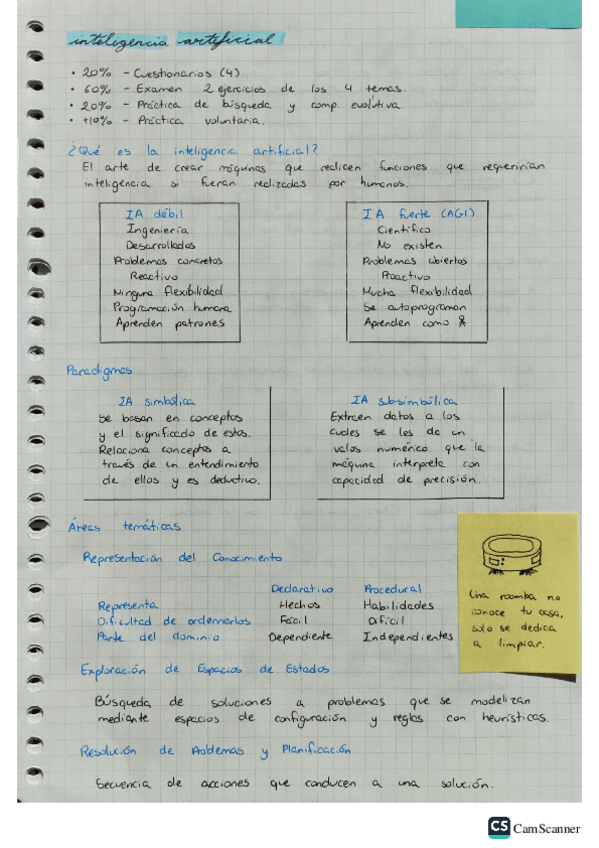 inteligencia artificial
• 20% - Cuestionarios (4)
• 60% - Examen 2 ejercicios de los 4 temas.
• 20% - Práctica de búsqueda y comp. evolutiva.
• +10% - Práctica voluntaria.
¿Qué es la inteligencia artificial?
El arte de crear máquinas que realicen funciones que requerirían
inteligencia si fueran realizadas por humanos.
IA débil
Ingeniería
Desarrollados
Problemas concretos
Reactivo
Ninguna flexibilidad
Programación humana
Aprenden patrones
IA fuerte (AGI)
Científico
No existen
Problemas abiertos
Proactivo
Mucha flexibilidad
Se autoprograman
Aprenden como
Paradigmas
IA simbólica
Se basan en conceptos
y el significado de estos.
Relaciona conceptos a
través de un entendimiento
de ellos y es deductivo.
IA subsimbólica
Extraen datos a los
cuales se les da un
valor numérico que la
máquina interpreta con
capacidad de precisión.
Áreas temáticas
Representación del Conocimiento
Declarativo Procedural
Representa Hechos Habilidades
Dificultad de ordenarlos Fácil Difícil
Parte del dominio Dependiente Independientes
Una roomba no
conoce tu casa,
solo se dedica
a limpiar.
Exploración de Espacios de Estados
Búsqueda de soluciones a problemas que se modelizan
mediante espacios de configuración y reglas con heurísticas.
Resolución de Problemas y Planificación
Secuencia de acciones que conducen a una solución.
CS CamScanner